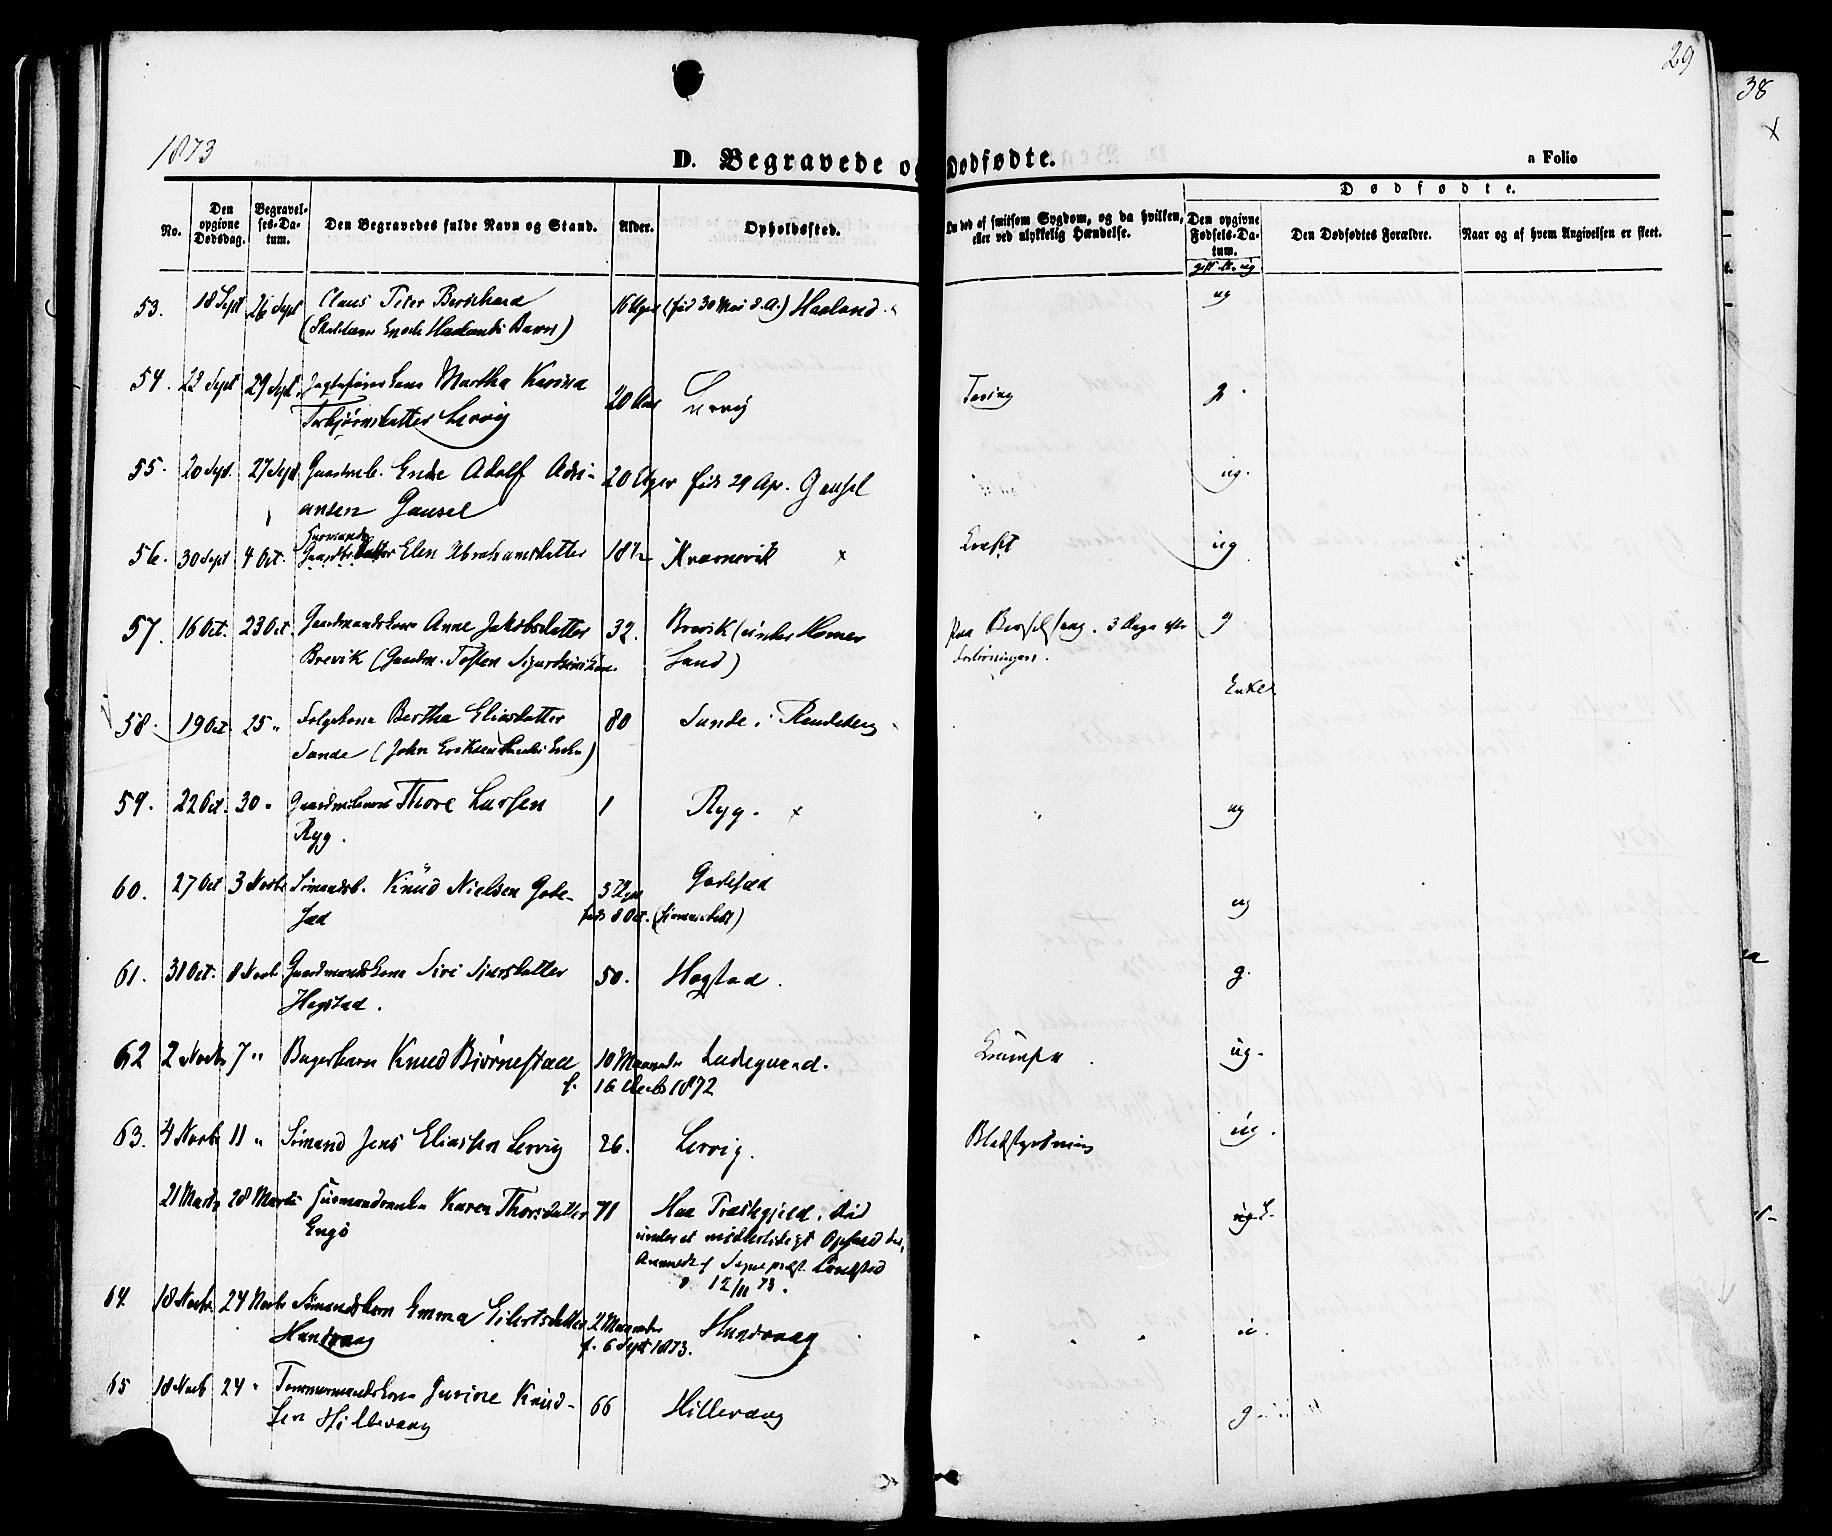 29
38
1873
D. Begravede og Dødfødte.
Folio
No.
Den opgivne Dødsdag.
Begravelses-Datum.
Den Begravedes fulde Navn og Stand.
Alder.
Opholdssted.
Om død af smitsom Sygdom, og da hvilken, eller ved ulykkelig Hændelse.
Dødfødte.
Den opgivne Fødsels-Datum.
Den Dødfødtes Forældre.
Naar og af hvem Angivelsen er skeet.
53. 18 Sept 26 Sept Claus Peter Berichard 16 Uger (fød 30 Mai d. A.) Haaland. ug
(Skoleholder Enoch Haalands Barn)
54. 22 Sept 29 Sept Martha Karina 20 Aar Lervig Tæring g.
Torbjørnsdatter Lervig
55. 20 Sept. 27 Sept Gaardmb. Endre Adolf Adri- 20 Uger født 29 Apr. Gausel ug.
ansen Gausel
Huusmands
56. 30 Sept 4 Oct. datter Elen Abrahamsdatter 18 1/2 Kvernevik x Kræft ug
57. 16 Oct. 23 Oct. Gaardmandskone Anne Jakobsdatter 32. Brevik (under Homer Paa Barselseng. 3 Dage efter g
Brevik (Gaardm. Tosten Sjurdsens Kone. Sand) Forløsningen.
Enke
58. 19 Oct. 25 " Folgekone Bertha Eliasdatter 80 Sande i Randeberg
Sande (John Eriksen Sandes Enke)
59. 22 Oct. 30 " Thore Larsen 1 Ryg. x ug
Ryg.
60. 27 Oct 3 Novbr Sømandsb. Knud Nielsen Gode- 3 Uger Godesæd ug
sæd født 8 Oct.
61. 31 Oct. 8 Novb Gaardmandskone Siri Sjursdatter 50. Hogstad. g.
Hogstad.
62 2 Novbr 7 " Bagerbarn Knud Bjørnestad 10 Maaneder Ladegaard. Krampe. ug.
f. 16 Decbr 1872
63. 4 Novbr 11 " Sømand Jens Eliassen Lervig 26. Lervig. Blodstyrtning ug.
21 Marts 28 Marts Huusmandsenke Karen Thorsdatter 71 Haa Præstegjeld, død ug E.
Engø under et midlertidigt Ophold der,
Anmeldt af Sogneprest
d. 12/11 73.
64. 18 Novbr. 24 Novbr Sømandsbarn Emma Eilertsdatter 2 Maaneder Hundvaag " " " u.
Hundvaag f. 6 Sept 1873.
65 18 Novb 24 " Tømmermandskone Jurine Knud- 66 Hillevaag g
sen Hillevaag